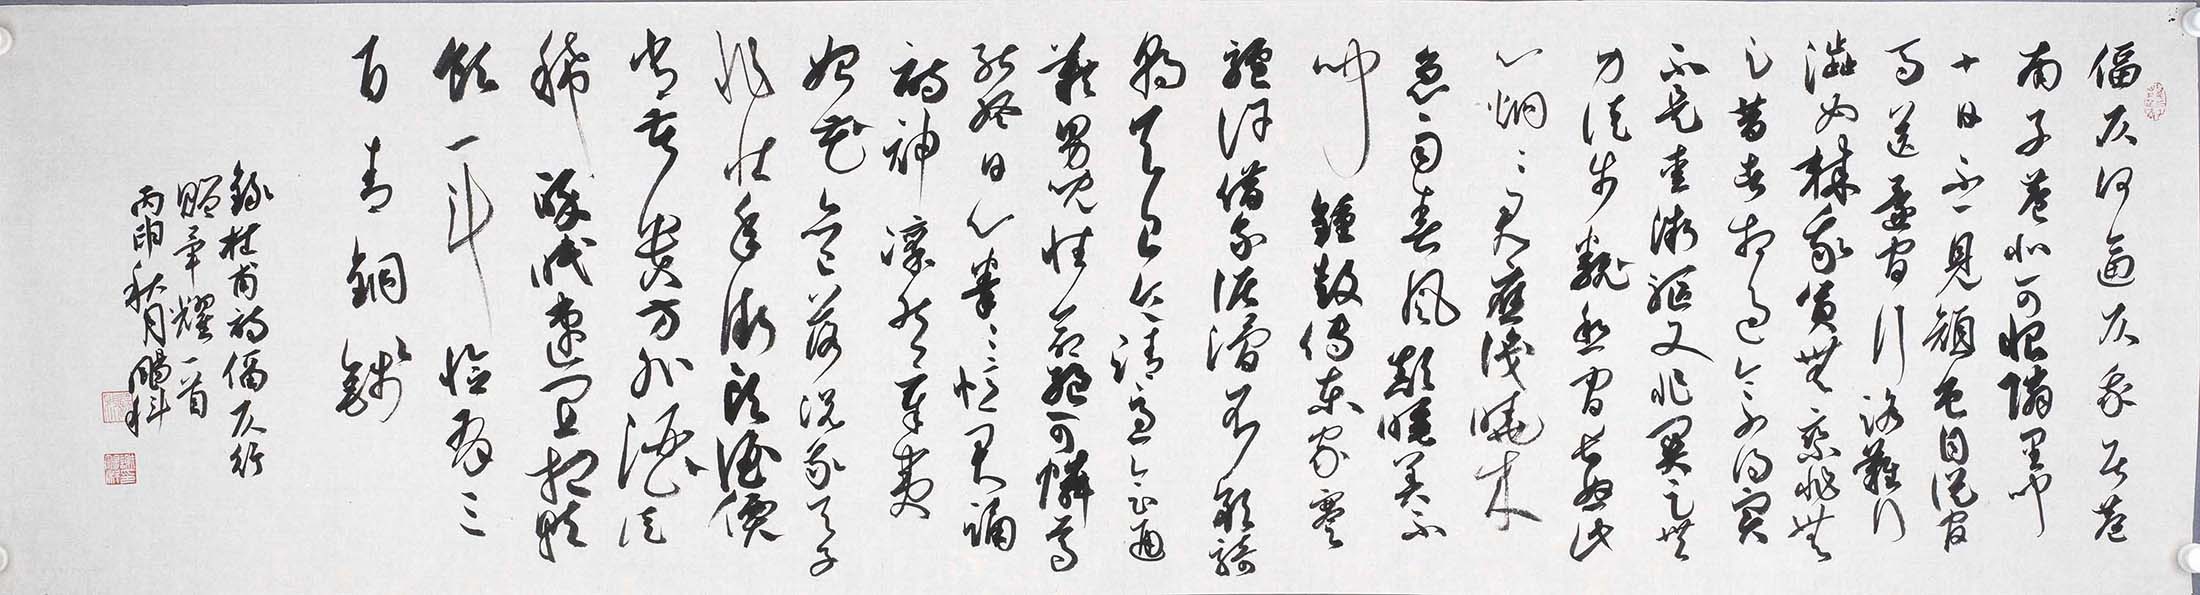 偪仄何逼仄我居巷
南子巷北可恨隣里間
十日不一見顔色自從官
馬送還官行路難行
澁如棘我貧無乘非無
足昔者相過今不得實
不是愛微軀又非關足無
力徒步翻愁官長怒此
心炯々君應識曉来
急雨春風顛睡美不
聞鐘鼓傳東家蹇
驢許借我泥滑不敢騎
朝天已令請急會通
籍男兒性命絶可憐焉
能終日心拳々憶君誦
詩神凛然辛夷
始花亦已落況我與子
非壮年街頭酒價
常苦貴方外酒徒
稀醉眠速宜相就
飲一斗恰有三
百青銅錢
錄杜甫詩偪仄行
贈畢耀一首
丙申秋月鵬科